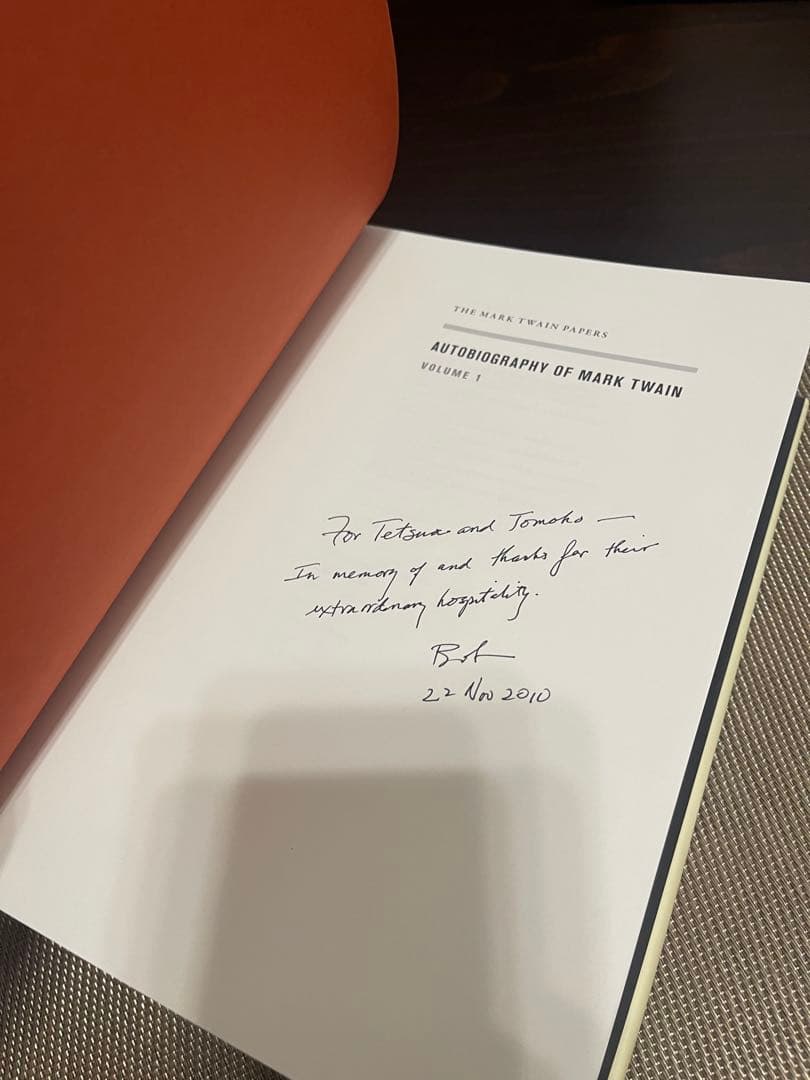 THE MARK TWAIN PAPERS
AUTOBIOGRAPHY OF MARK TWAIN
VOLUME 1
For Tetsuo and Tomoko —
In memory of and thanks for their
extraordinary hospitality.
Bob
22 Nov 2010